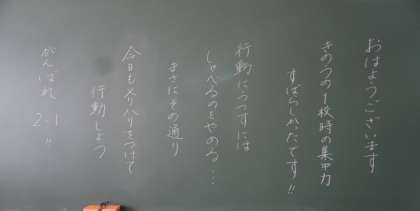 おはようございます
きのうの1校時の集中力
すばらしかったです!!
行動にうつすには
しゃべるのをやめる…
まさにその通り
今日もメリハリをつけて
行動しよう
がんばれ 2-1 !!